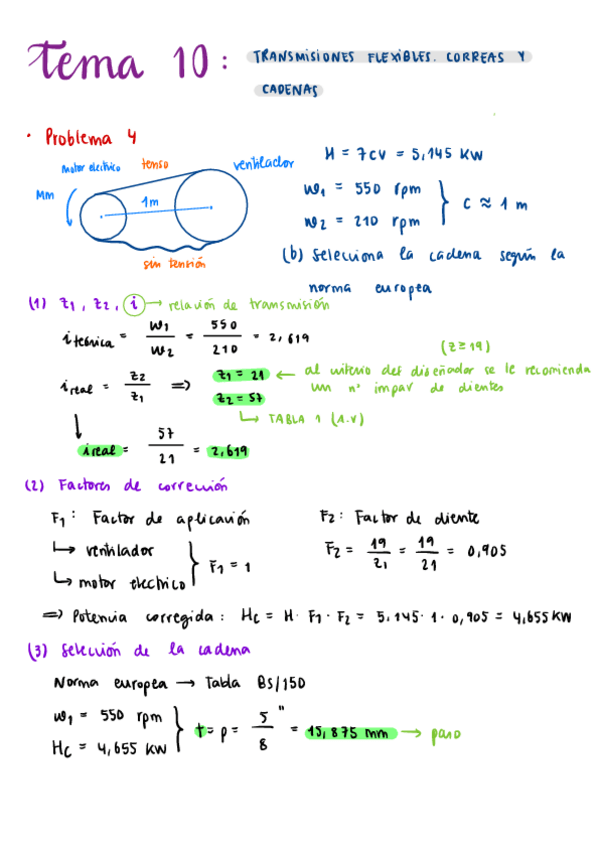 Tema 10: TRANSMISIONES FLEXIBLES. CORREAS Y
CADENAS
• Problema 4
motor eléctrico tenso ventilador
Mm
1m
sin tensión
H = 7CV = 5,145 KW
ω1 = 550 rpm
ω2 = 210 rpm } C ≈ 1 m
(b) Selecciona la cadena según la
norma europea
(1) z1, z2, i → relación de transmisión
i teórica = ω1/ω2 = 550/210 = 2,619
(z ≥ 19)
i real = z2/z1 ⇒ z1 = 21 ← al criterio del diseñador se le recomienda
un nº impar de dientes
z2 = 57
↳ TABLA 1 (A.V)
i real = 57/21 = 2,619
(2) Factores de corrección
F1: Factor de aplicación
↳ ventilador
↳ motor electrico } F1 = 1
F2: Factor de diente
F2 = 19/z1 = 19/21 = 0,905
⇒ Potencia corregida: Hc = H· F1 · F2 = 5,145· 1 · 0,905 = 4,655 KW
(3) Selección de la cadena
Norma europea → Tabla BS/150
ω1 = 550 rpm
Hc = 4,655 KW } t = p = 5/8" = 15,875 mm → paso